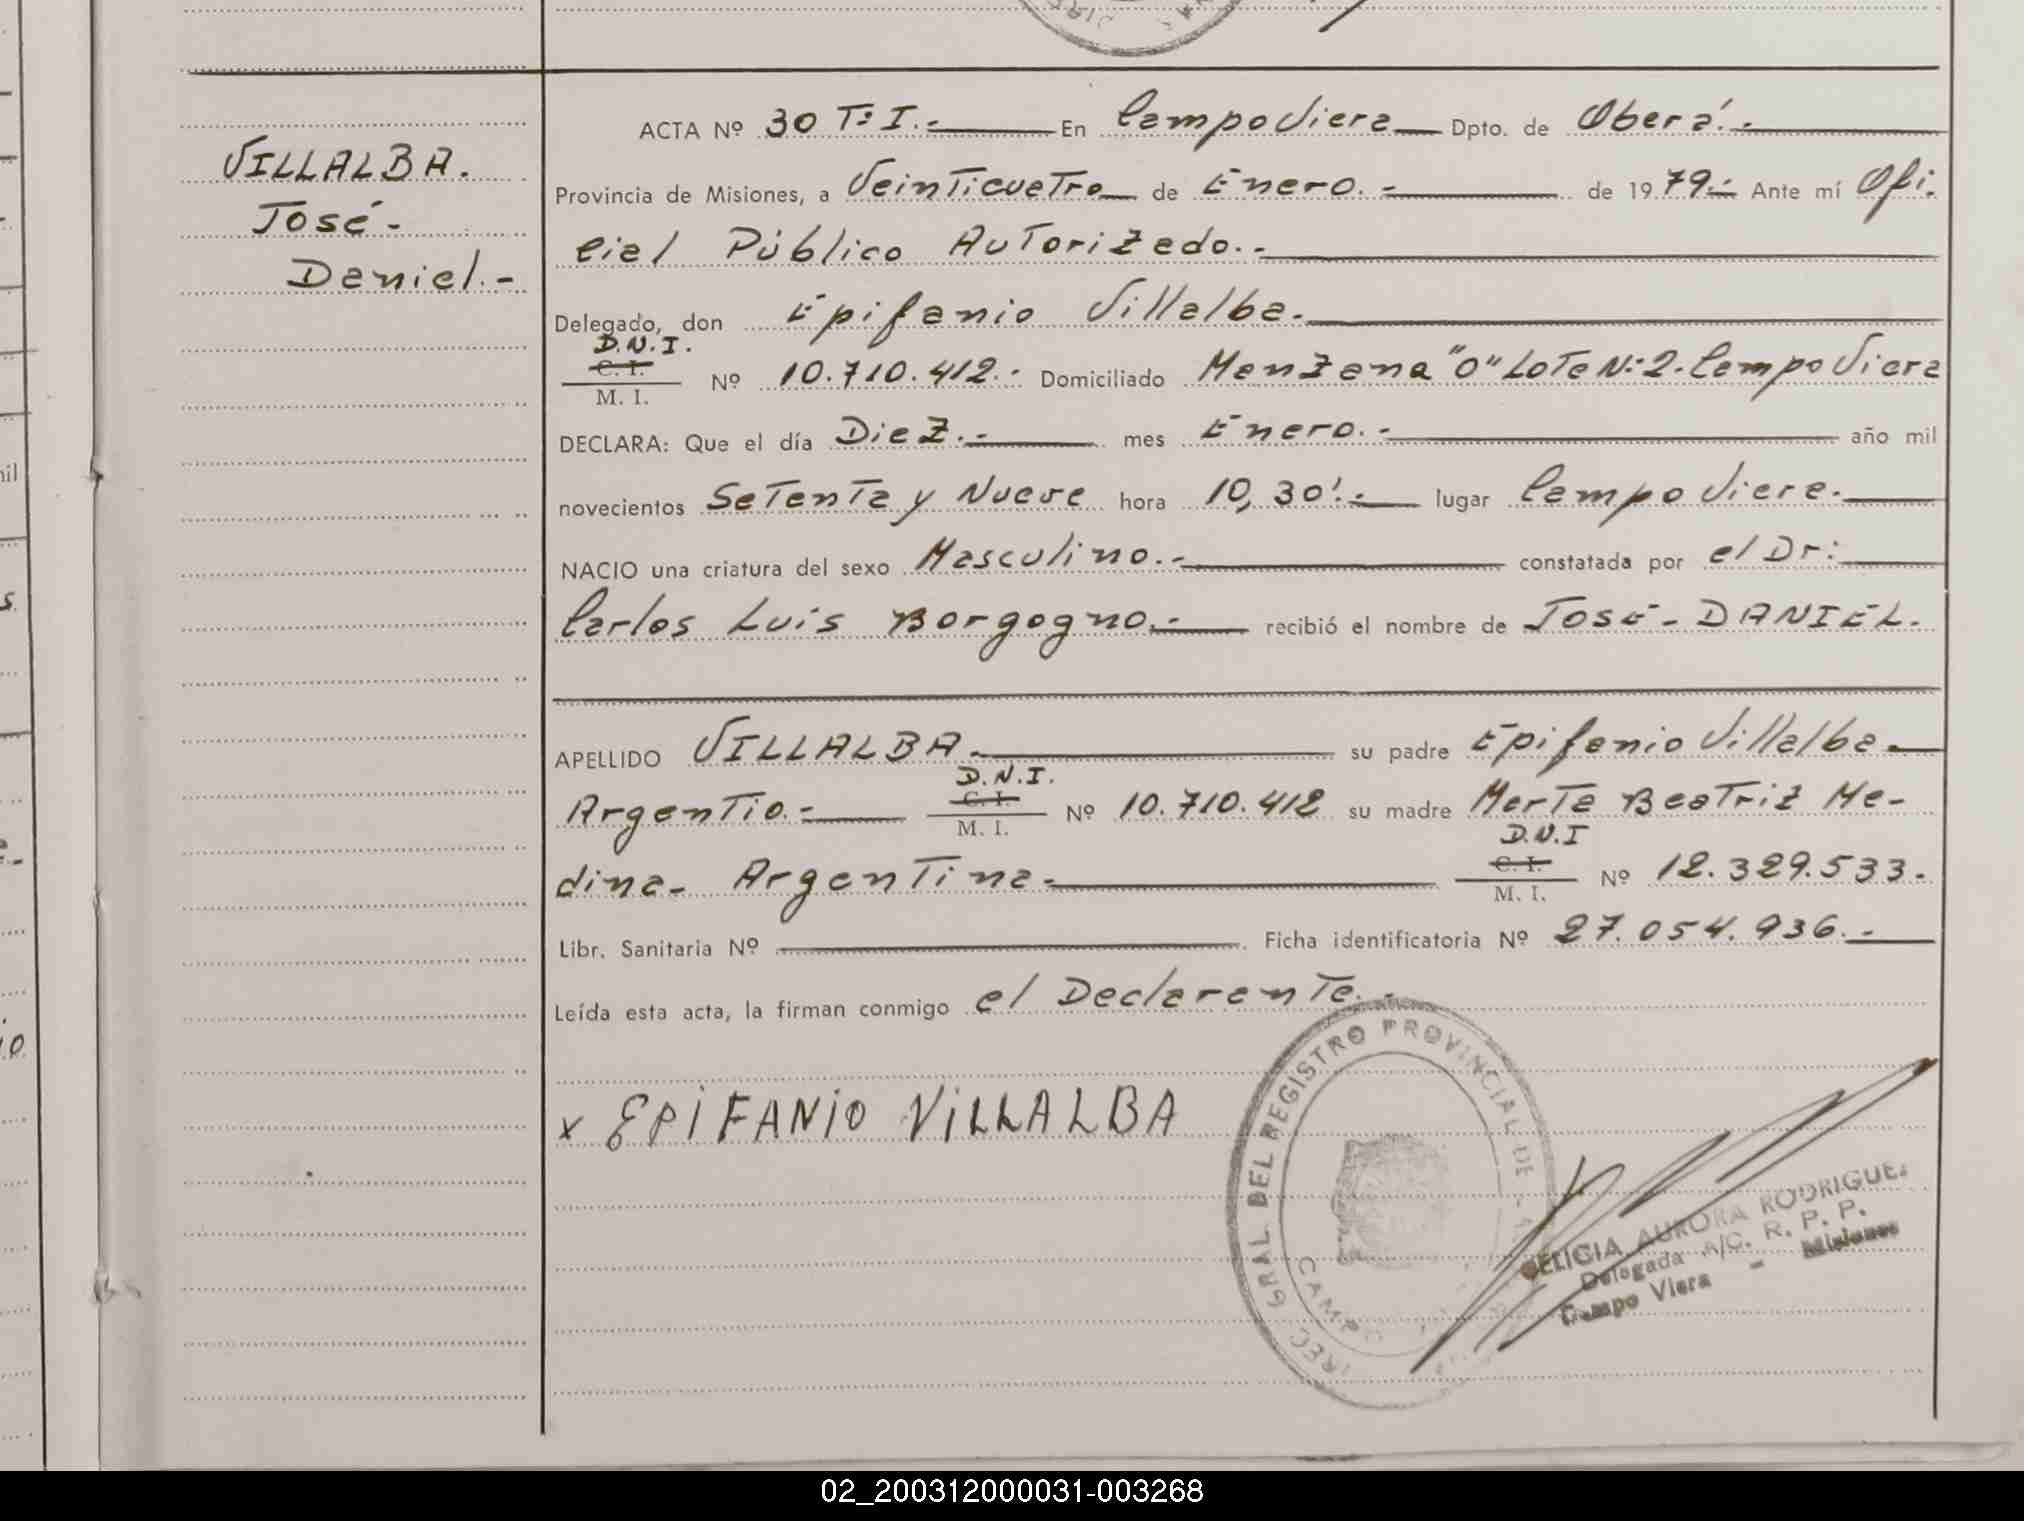 VILLALBA.
José-
Daniel.-
ACTA Nº 30 Tº I.- En Campo Viera Dpto. de Oberá.-
Provincia de Misiones, a Veinticuatro de Enero.- de 1979.- Ante mí Ofi-
cial Público Autorizado.-
Delegado, don Epifanio Villalba.
D.N.I.
C. I.
M. I. Nº 10.710.412.- Domiciliado Manzana "O" Lote Nº 2. Campo Viera
DECLARA: Que el día Diez.- mes Enero.- año mil
novecientos Setenta y Nueve hora 10,30'.- lugar Campo Viera.
NACIO una criatura del sexo Masculino.- constatada por el Dr:
Carlos Luis Borgogno.- recibió el nombre de JOSÉ-DANIEL.
APELLIDO VILLALBA. su padre Epifanio Villalba.
D.N.I.
C. I.
Argentio.- M. I. Nº 10.710.412 su madre Marta Beatriz Me-
D.N.I
C. I.
dina- Argentina. M. I. Nº 12.329.533.
Libr. Sanitaria Nº Ficha identificatoria Nº 27.054.936.-
Leída esta acta, la firman conmigo el Declarante.-
x EPIFANIO VILLALBA
GRAL. DEL REGISTRO PROVINCIAL DE
CAMPO
AURORA RODRIGUEZ
Delegada A/C. R. P. P.
Campo Viera - Misiones
02_200312000031-003268